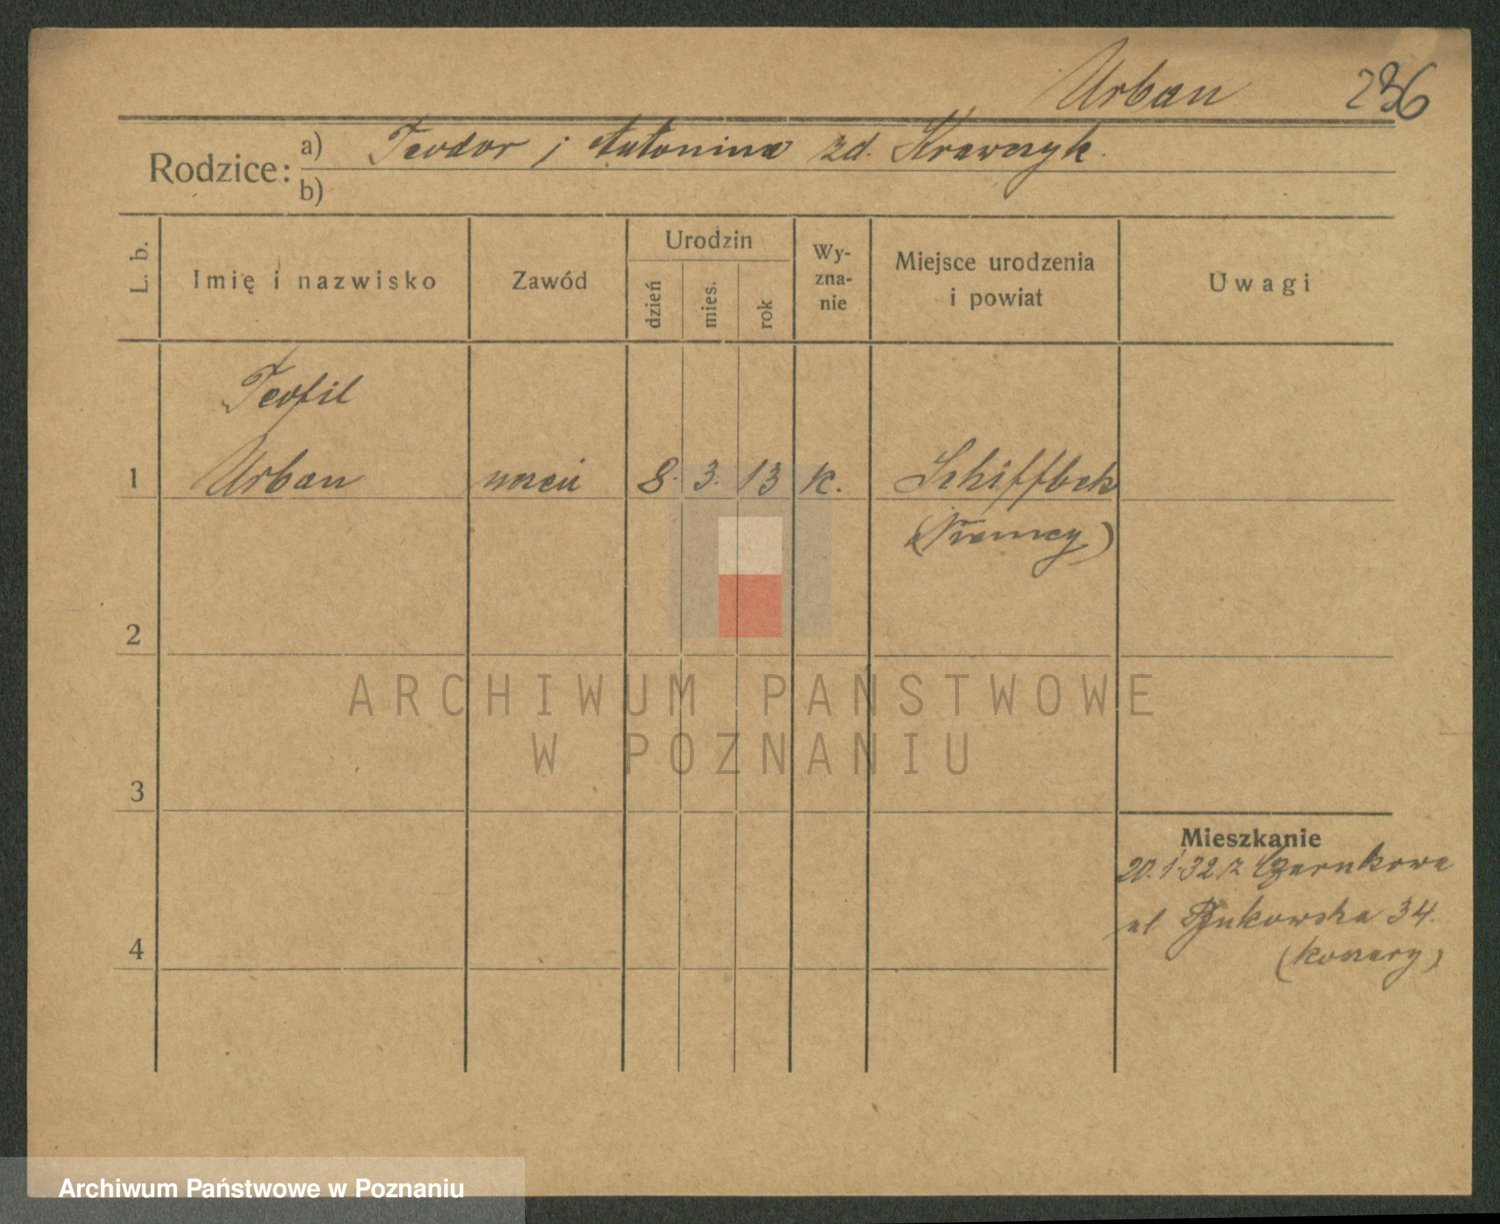 Urban 236
Rodzice: a) Teodor i Antonina zd. Krawczyk.
b)
L. b.
Imię i nazwisko
Zawód
Urodzin
dzień
mies.
rok
Wy-
zna-
nie
Miejsce urodzenia
i powiat
Uwagi
Teofil
1 Urban uczeń 8. 3. 13 k. Schiffbek
(Niemcy)
2
ARCHIWUM PAŃSTWOWE
W POZNANIU
3
Mieszkanie
20.1.32 z Czarnkowa
ul Bukowska 34.
4
Archiwum Państwowe w Poznaniu